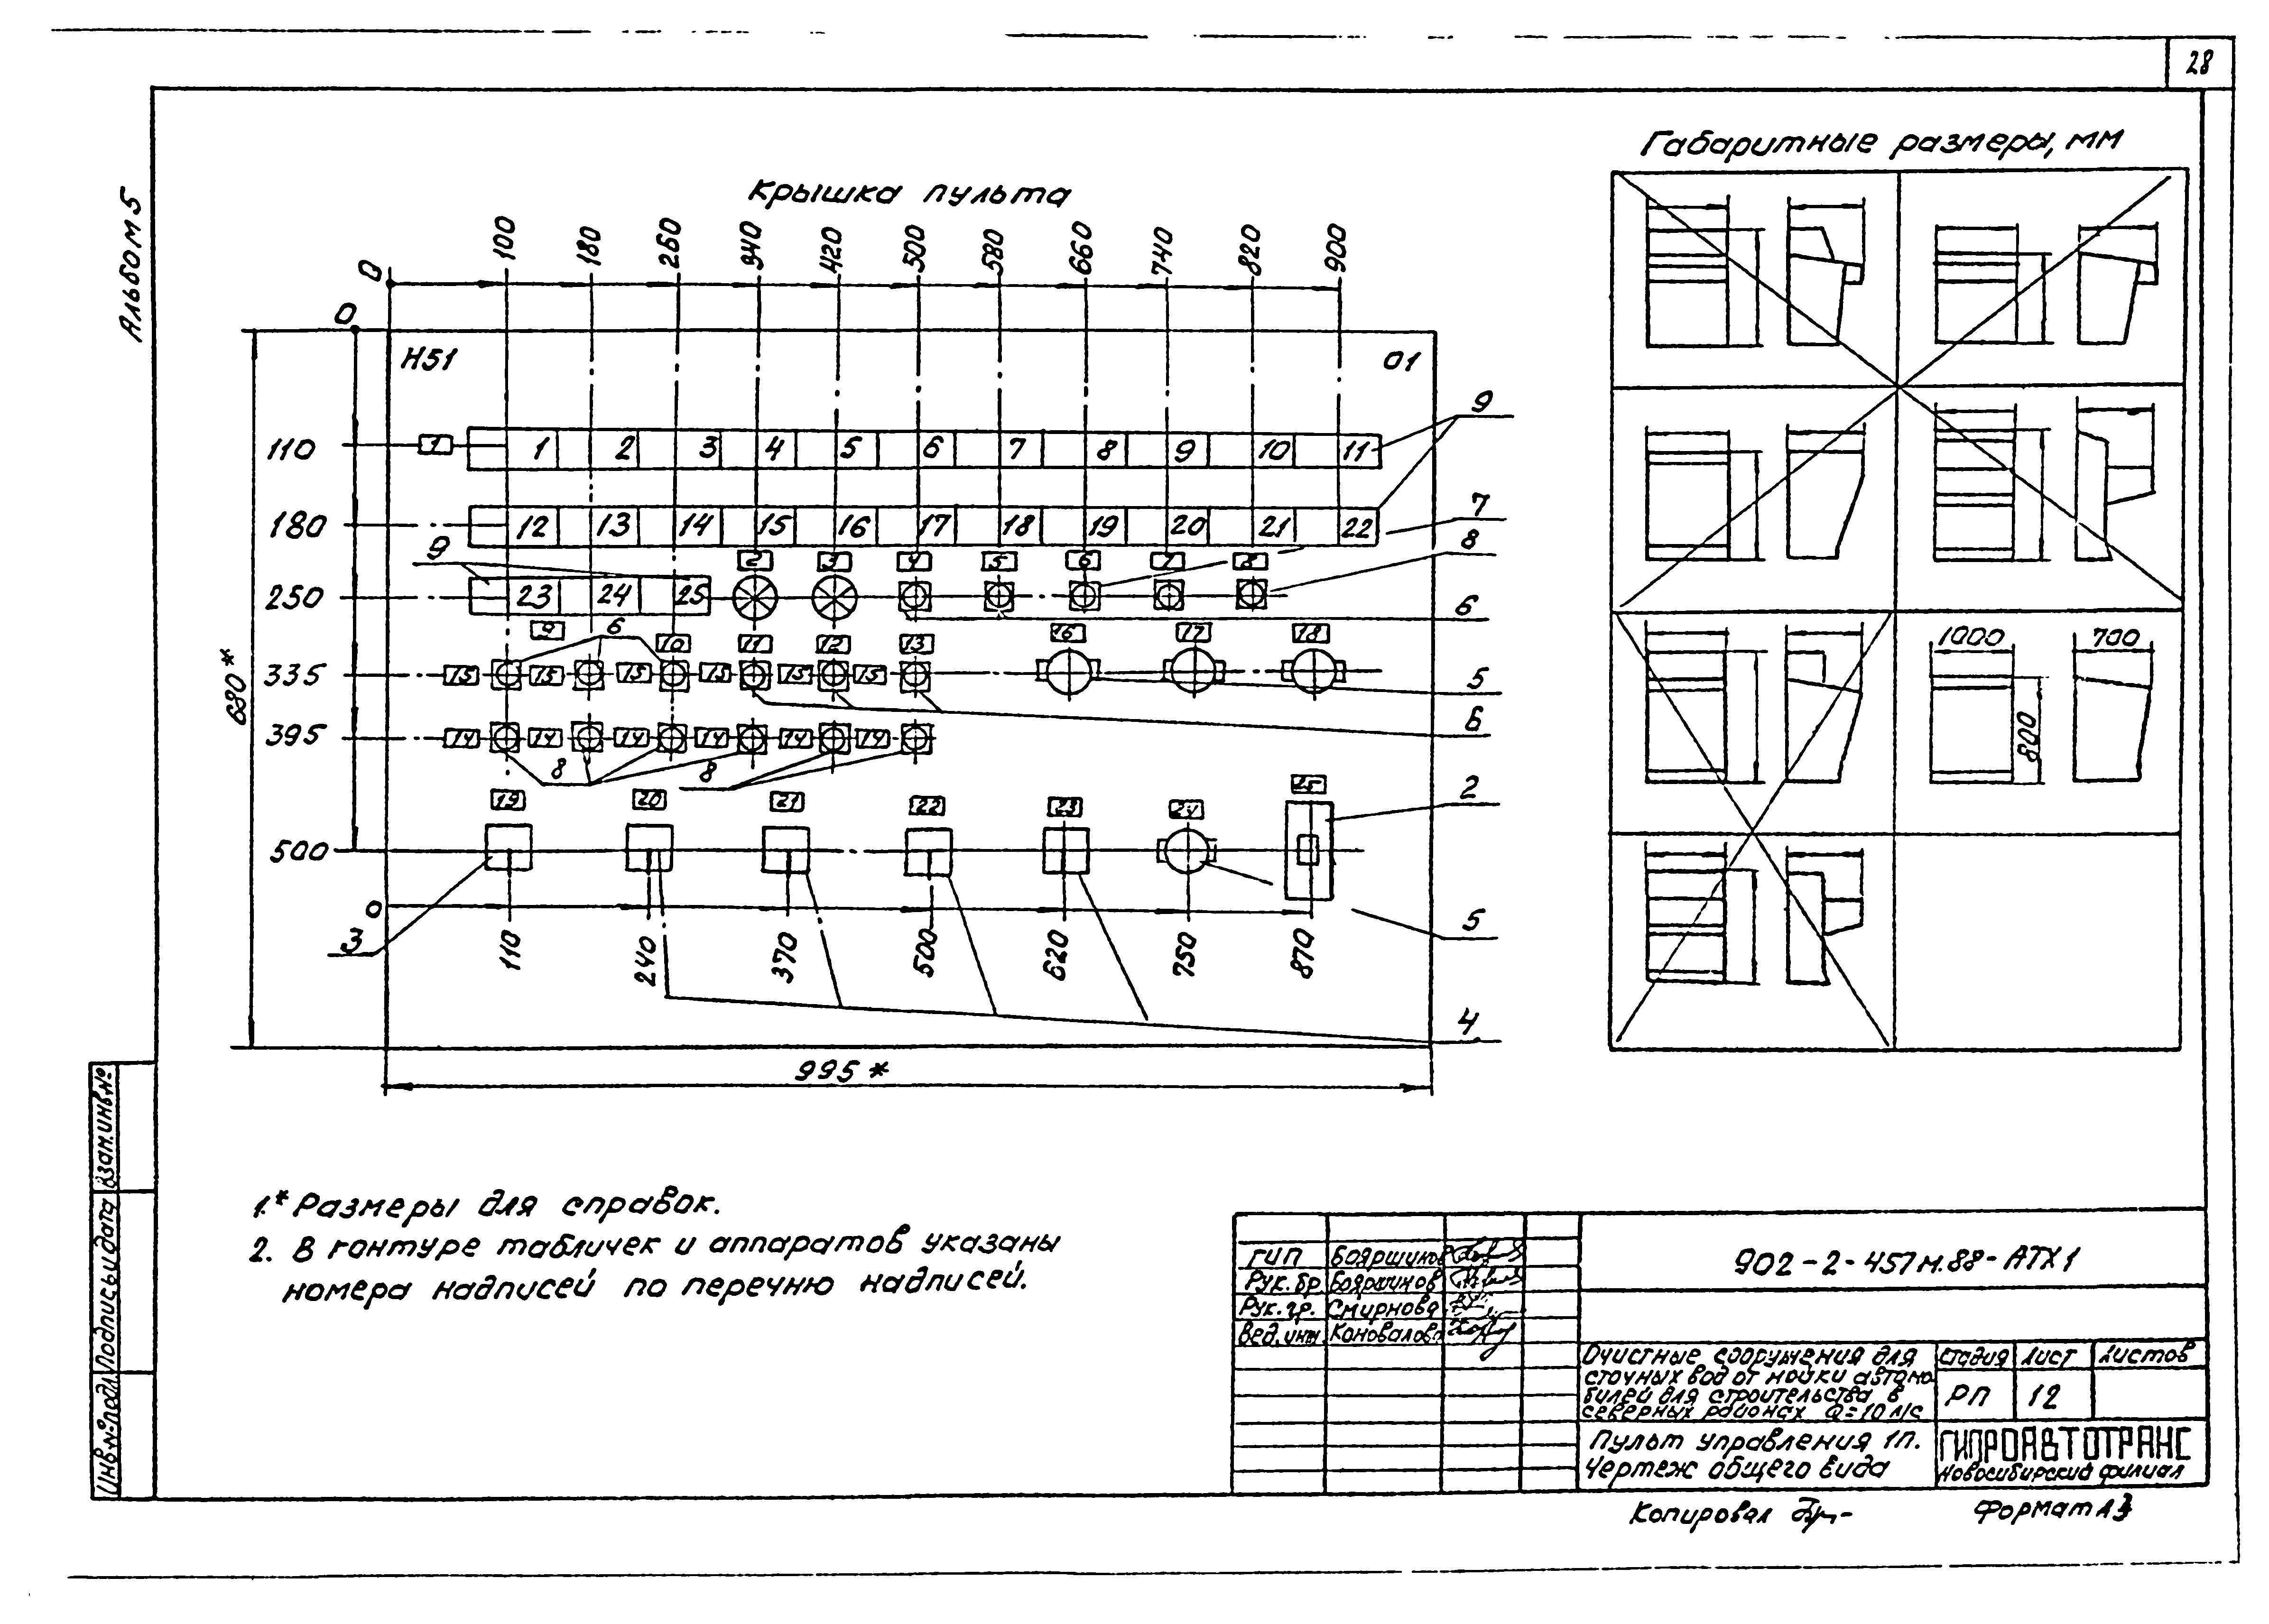 28
Альбом 5
Крышка пульта
Габаритные размеры, мм
0 100 180 260 340 420 500 580 660 740 820 900
0
Н51 01
9
110 1 1 2 3 4 5 6 7 8 9 10 11
7
180 12 13 14 15 16 17 18 19 20 21 22
9 2 3 4 5 6 7 8 8
250 23 24 25
6
9 6 10 11 12 13 16 17 18
335 15 15 15 15 15 15
5
6
395 14 14 14 14 14 14
8 8
2
19 20 21 22 23 24 25
500
0
3 5
110 240 370 500 620 750 870
4
680*
995*
1000 700
800
1.* Размеры для справок.
2. В контуре табличек и аппаратов указаны
номера надписей по перечню надписей.
Взам. инв. №
Подпись и дата
Инв. № подл.
902-2-457м.88-АТХ1
ГИП Бояршинов
Рук. бр. Бояршинов
Рук. гр. Смирнова
Вед. инж. Коновалова
Очистные сооружения для
сточных вод от мойки автомо
билей для строительства в
северных районах Q=10 л/с
Стадия Лист Листов
РП 12
Пульт управления 1п.
Чертеж общего вида
ГИПРОАВТОТРАНС
Новосибирский филиал
Копировал
Формат А3